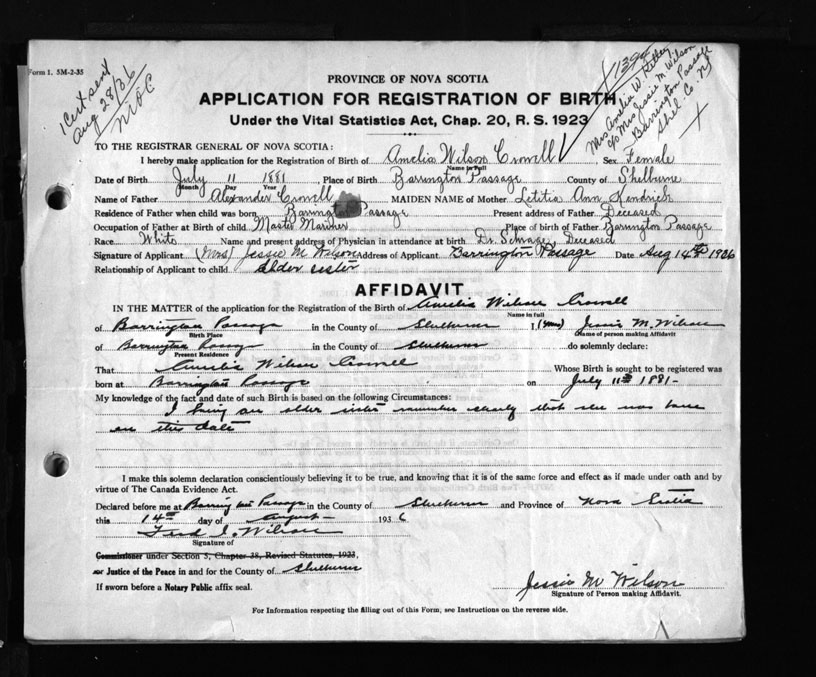 Form 1. 5M-2-35
1 Cert sent
Aug 28/36
1398
Mrs Amelia W.
c/o Mrs Jessie M. Wilson
Barrington Passage
Shel. Co. NS
PROVINCE OF NOVA SCOTIA
APPLICATION FOR REGISTRATION OF BIRTH
Under the Vital Statistics Act, Chap. 20, R. S. 1923
TO THE REGISTRAR GENERAL OF NOVA SCOTIA:
I hereby make application for the Registration of Birth of Amelia Wilson Crowell Sex Female
Name in Full
Date of Birth July 11 1881, Place of Birth Barrington Passage County of Shelburne
Month Day Year
Name of Father Alexander Crowell MAIDEN NAME of Mother Letitia Ann Kendrick
Residence of Father when child was born Barrington Passage Present address of Father Deceased
Occupation of Father at Birth of child Master Mariner Place of birth of Father Barrington Passage
Race White Name and present address of Physician in attendance at birth Dr. Deceased
Signature of Applicant (Mrs) Jessie M Wilson Address of Applicant Barrington Passage Date Aug 14th 1936
Relationship of Applicant to child Elder sister
AFFIDAVIT
IN THE MATTER of the application for the Registration of the Birth of Amelia Wilson Crowell
Name in full
of Barrington Passage in the County of Shelburne I (Mrs) Jessie M. Wilson
Birth Place Name of person making Affidavit
of Barrington Passage in the County of Shelburne do solemnly declare:
Present Residence
That Amelia Wilson Crowell Whose Birth is sought to be registered was
born at Barrington Passage on July 11th 1881-
My knowledge of the fact and date of such Birth is based on the following Circumstances:
I being an older sister remember clearly that she was born
on this date
I make this solemn declaration conscientiously believing it to be true, and knowing that it is of the same force and effect as if made under oath and by
virtue of The Canada Evidence Act.
Declared before me at Barrington Passage in the County of Shelburne and Province of Nova Scotia
this 14th day of August 1936
Fred I. Wilson
Signature of
Commissioner under Section 5, Chapter 38, Revised Statutes, 1923,
or Justice of the Peace in and for the County of Shelburne
If sworn before a Notary Public affix seal.
Jessie M Wilson
Signature of Person making Affidavit.
For Information respecting the filling out of this Form, see Instructions on the reverse side.